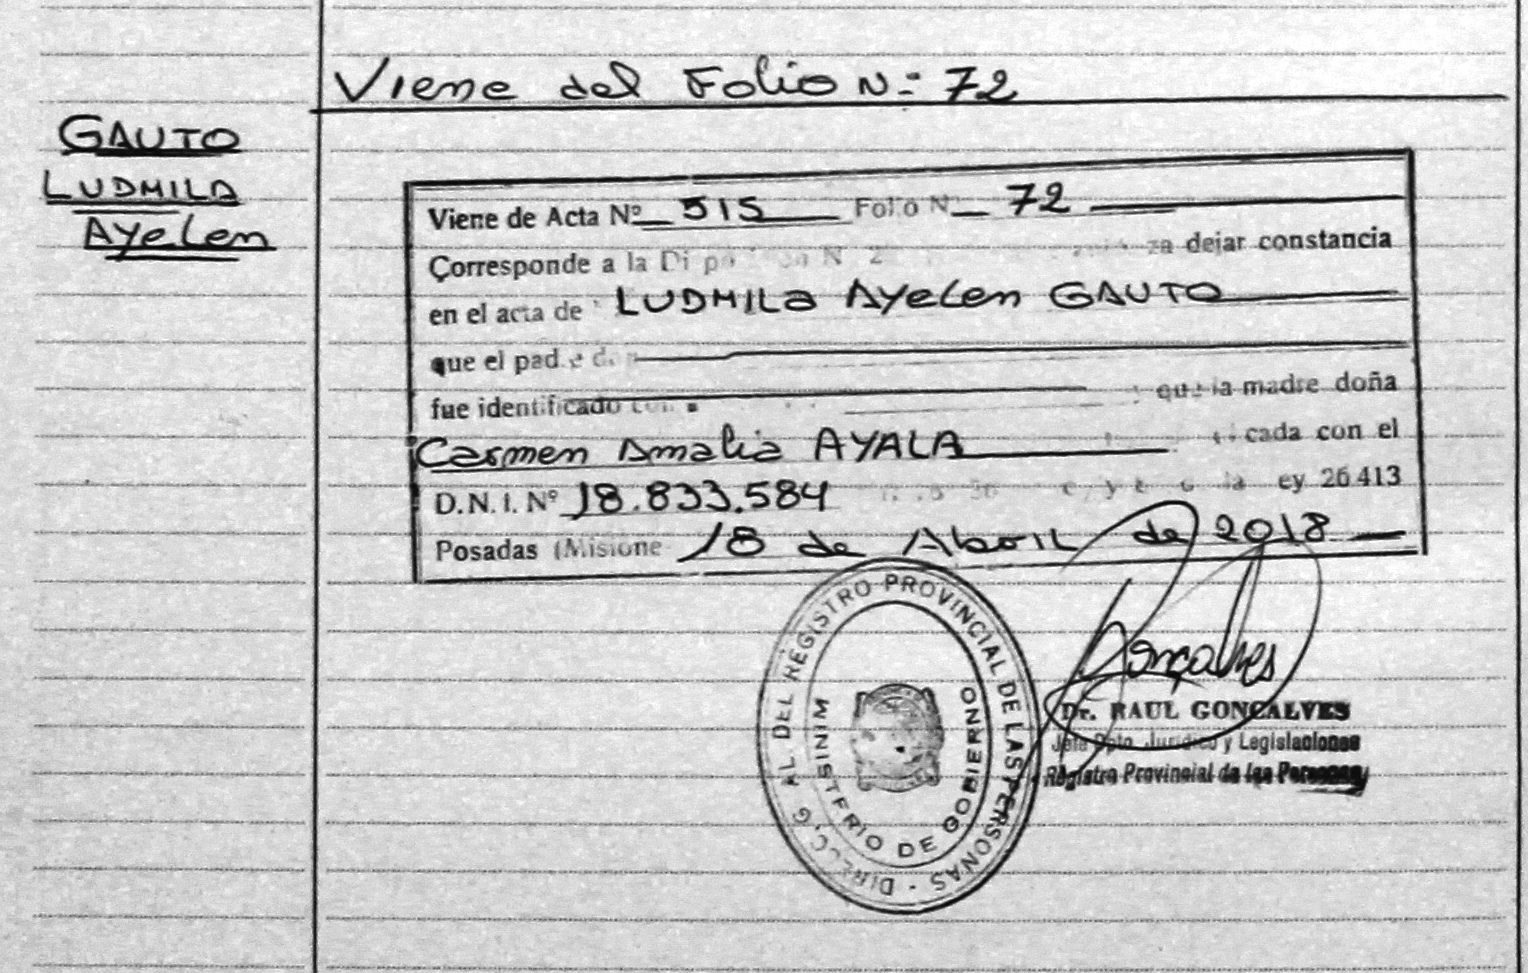 Viene del Folio N= 72
GAUTO
LUDMILA
Ayelen
Viene de Acta Nº 515 Folio N 72
Corresponde a la dejar constancia
en el acta de LUDMILA Ayelen GAUTO
que el padre don
fue identificado que la madre doña
Carmen Amalia AYALA cada con el
D.N.I. Nº 18.833.584 la ey 26413
Posadas (Misione 18 de Abril de 2018
DIRECC. G AL DEL REGISTRO PROVINCIAL DE LAS PERSONAS
MINISTERIO DE GOBIERNO
Gonçalves
Dr. RAUL GONCALVES
Jefe Dpto. Juridico y Legislaciones
Registro Provincial de las Personas